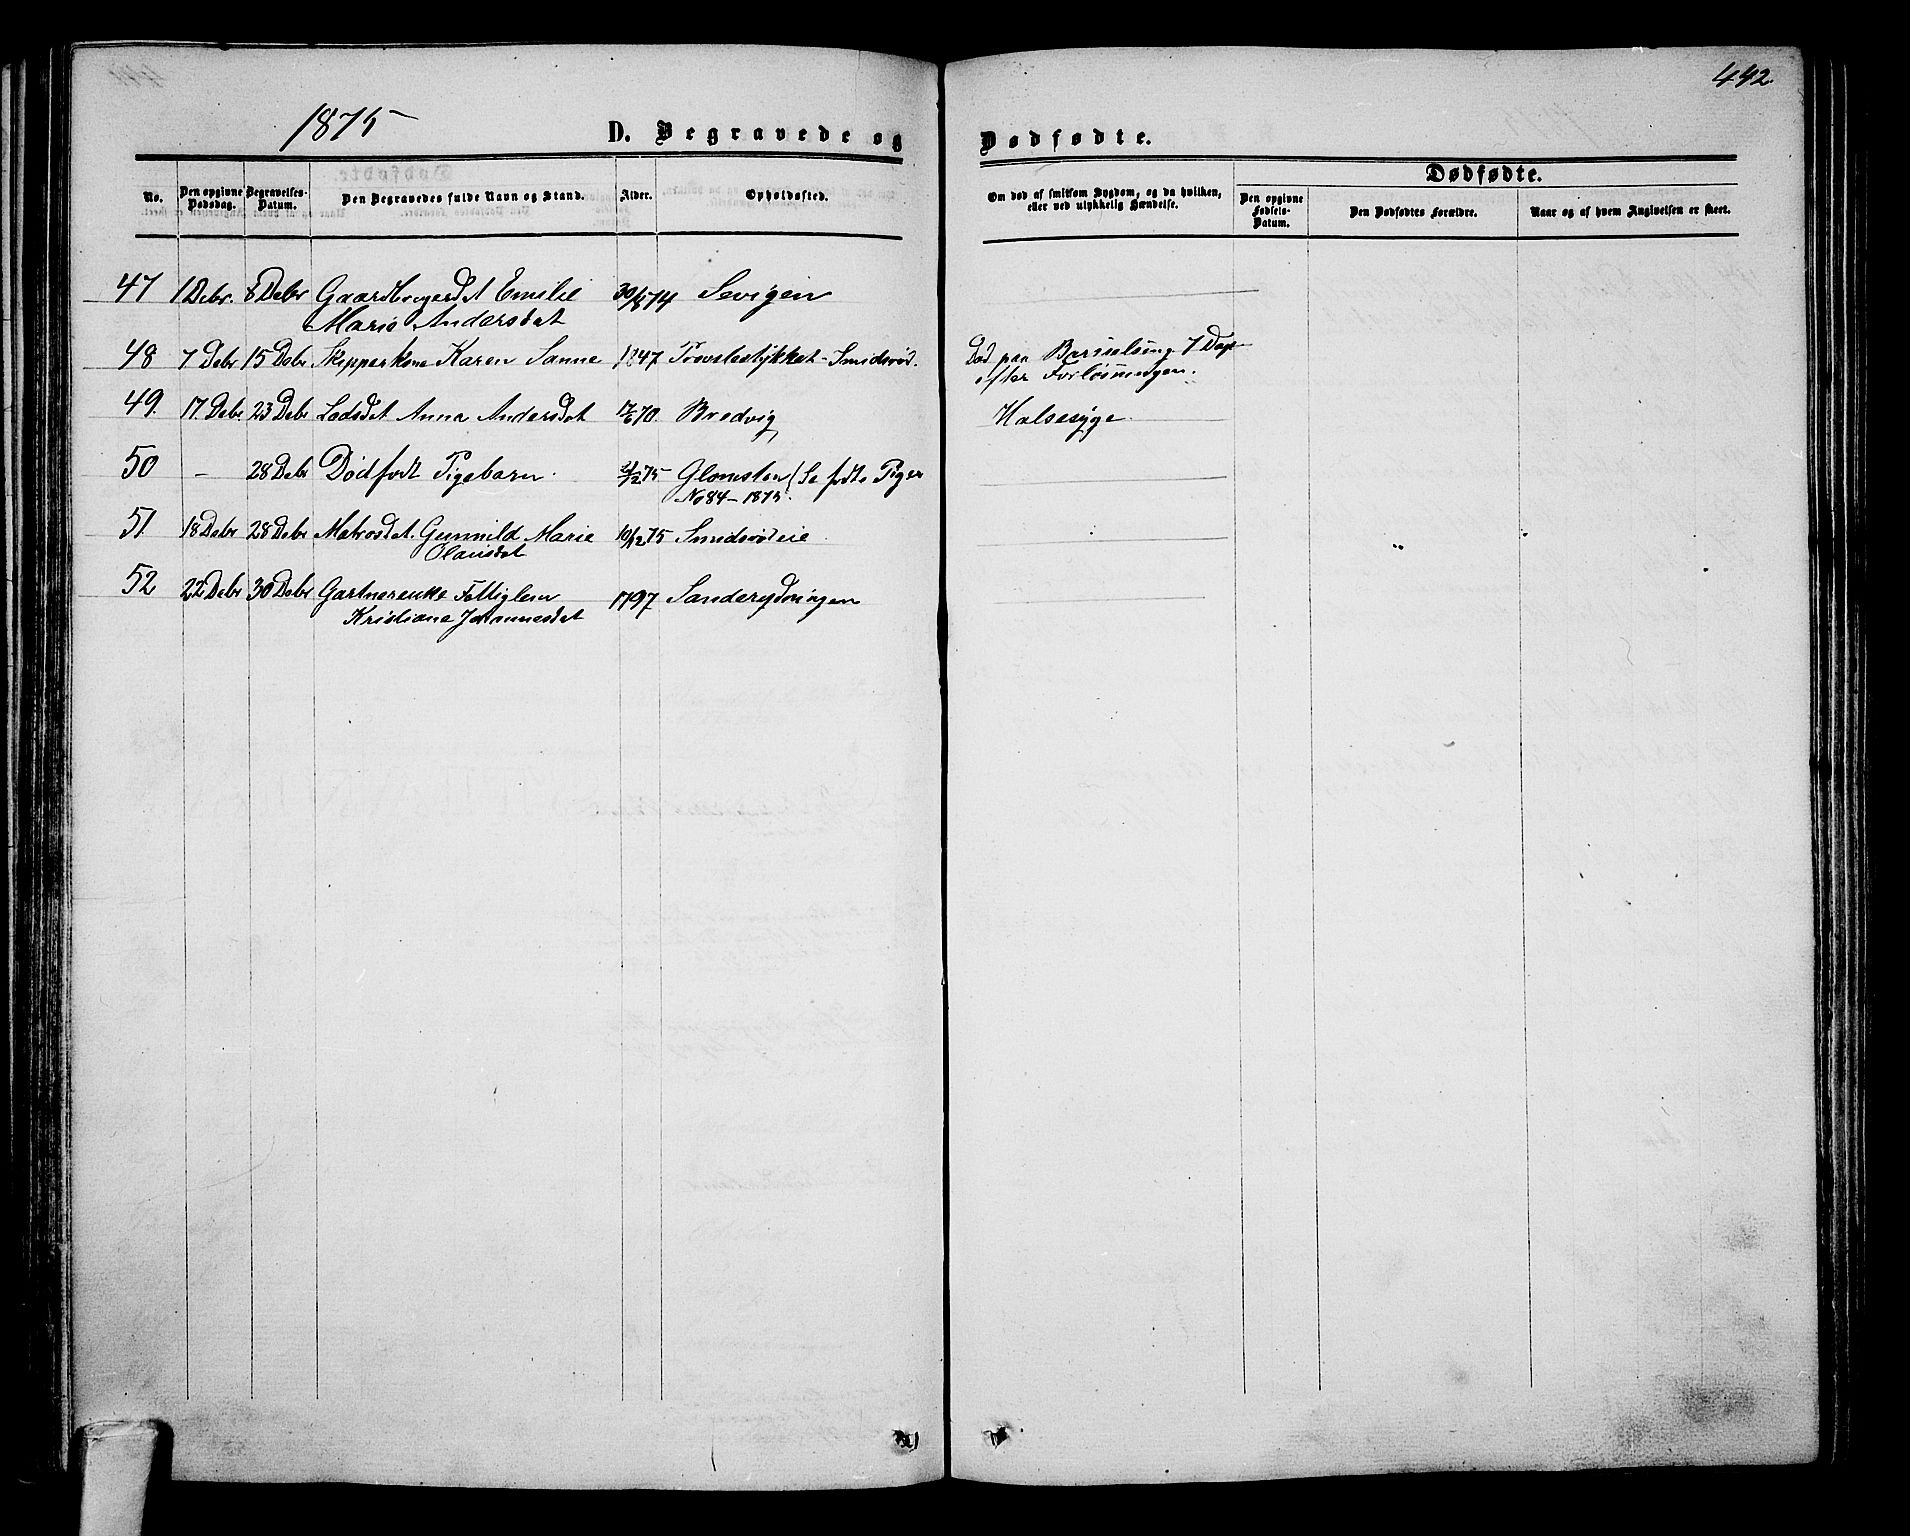 442.
1875
D. Begravede og
Dødfødte.
No.
Den opgivne Dødsdag.
Begravelses-Datum.
Den Begravedes fulde Navn og Stand.
Alder.
Opholdssted.
Om død af smitsom Sygdom, og da hvilken, eller ved ulykkelig Hændelse.
Dødfødte.
Den opgivne Fødsels-Datum.
Den Dødfødtes Forældre.
Naar og af hvem Angivelsen er skeet.
47 1 Debr. 8 Debr Gaardbrugerdat Emilie
Marie Andersdat
48 7 Debr 15 Debr Skipperkone Karen Sanne 1847 Provstestykket - Smidsrød.
Død paa Barselseng 7 Dage
efter Forløsningen.
49. 17. Debr. 23 Debr Lodsdat Anna Andersdat Bredvig Halsesyge.
50 - 28 Debr Dødfødt Pigebarn. Glomsten (Se fødte Piger
No 84 - 1875.
51. 18 Debr 28 Debr Matrosdat. Gunnild Marie 10/12 75 Smidsrødeie
Olausdat
52 22 Debr 30 Debr Gartnerenke Fattiglem 1797
Kristiane Johannesdat